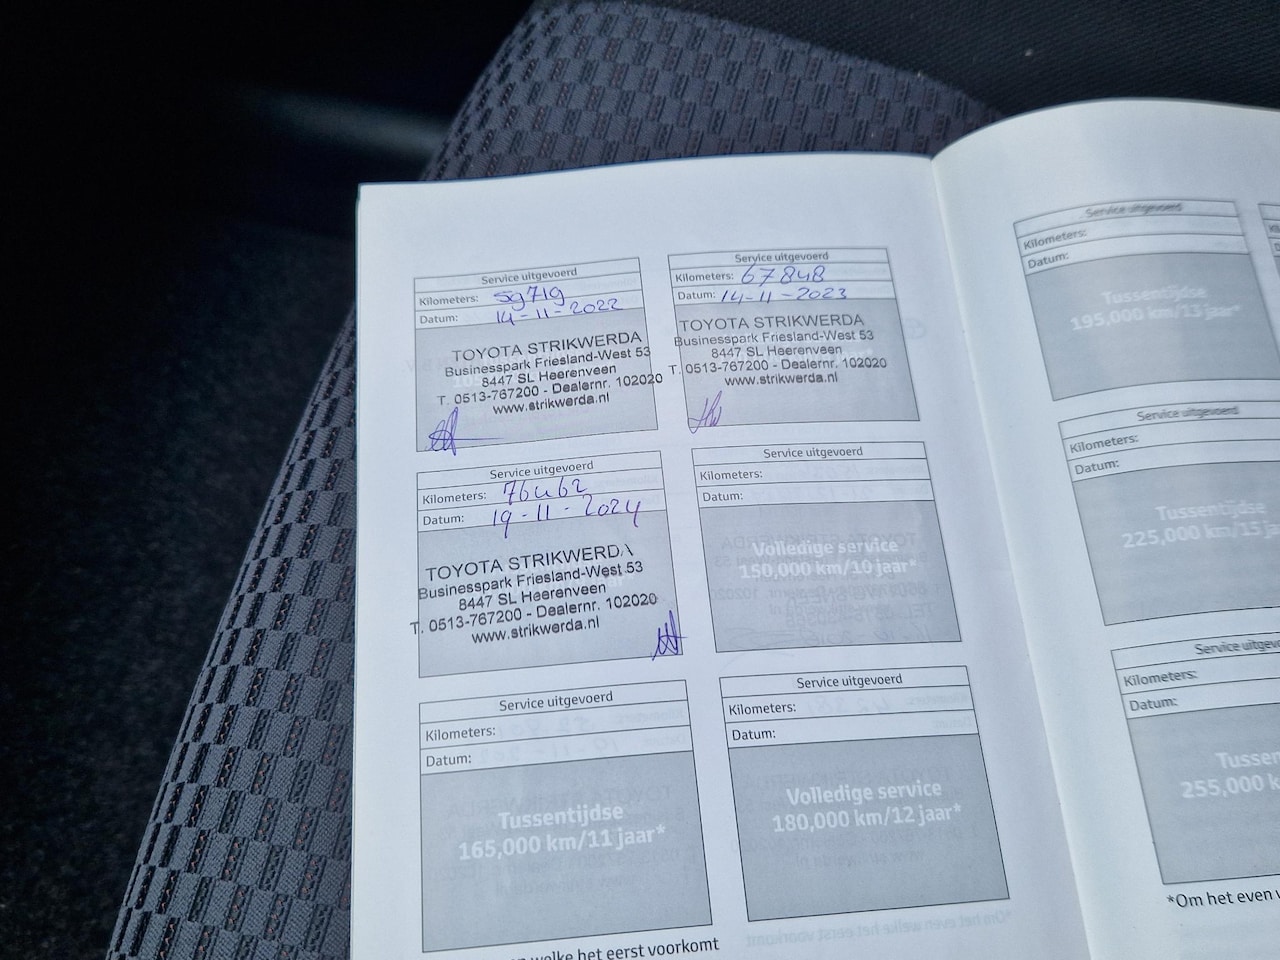 Service uitgevoerd
Kilometers: 59719
Datum: 14-11-2022
TOYOTA STRIKWERDA
Businesspark Friesland-West 53
8447 SL Heerenveen
T. 0513-767200 - Dealernr. 102020
www.strikwerda.nl
Service uitgevoerd
Kilometers: 67848
Datum: 14-11-2023
TOYOTA STRIKWERDA
Businesspark Friesland-West 53
8447 SL Heerenveen
T. 0513-767200 - Dealernr. 102020
www.strikwerda.nl
Service uitgevoerd
Kilometers: 76462
Datum: 19-11-2024
TOYOTA STRIKWERDA
Businesspark Friesland-West 53
8447 SL Heerenveen
T. 0513-767200 - Dealernr. 102020
www.strikwerda.nl
Service uitgevoerd
Kilometers:
Datum:
Volledige service
150,000 km/10 jaar*
Service uitgevoerd
Kilometers:
Datum:
Tussentijdse
165,000 km/11 jaar*
Service uitgevoerd
Kilometers:
Datum:
Volledige service
180,000 km/12 jaar*
welke het eerst voorkomt
Service uitgevoerd
Kilometers:
Datum:
Tussentijdse
195,000 km/13 jaar*
Service uitgevoerd
Kilometers:
Datum:
Tussentijdse
225,000 km/15 ja
Service uitgevo
Kilometers:
Datum:
Tussen
255,000 k
*Om het even